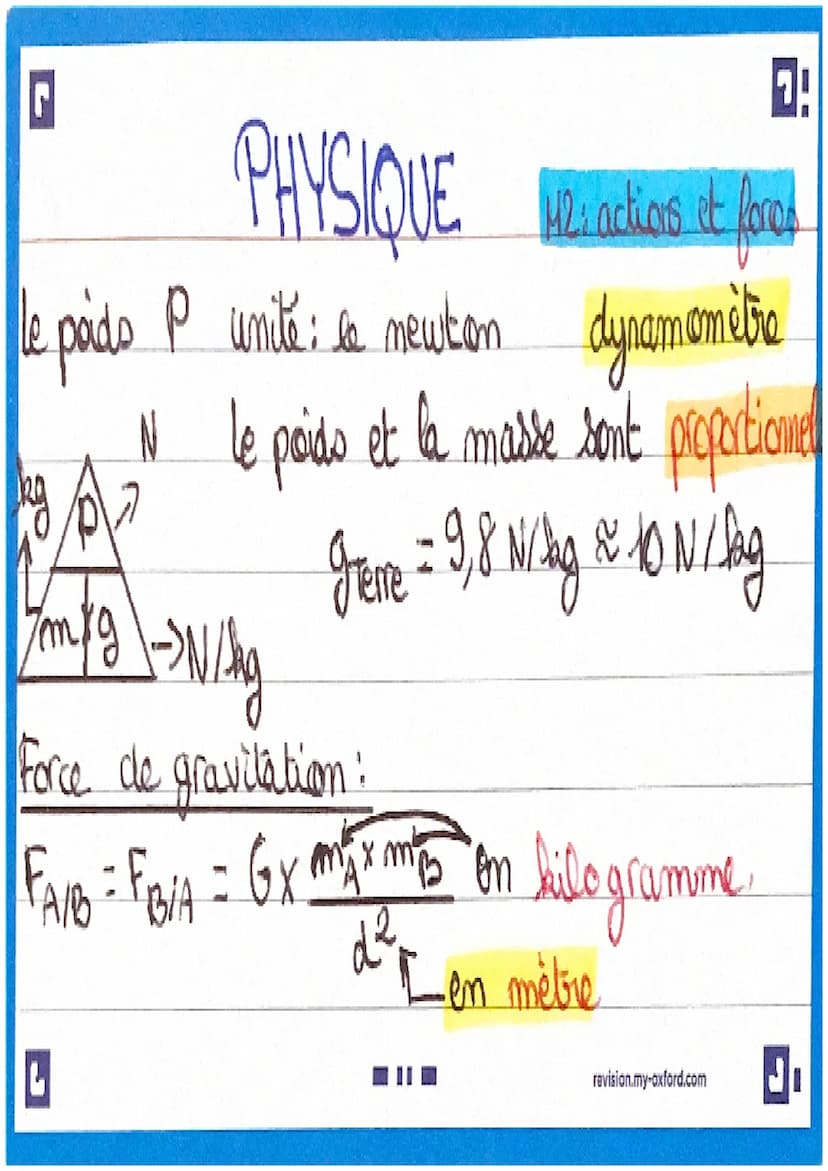 PHYSIQUE
M2: actions et forces
le poids P unité: le newton dynamomètre
N le poids et la masse sont proportionnel
kg
P
gTerre = 9,8 N/kg ≈ 10 N/kg
m × g → N/kg
Force de gravitation:
FA/B = FB/A = G × mA × mB en kilogramme.
d²
en mètre
revision.my-oxford.com